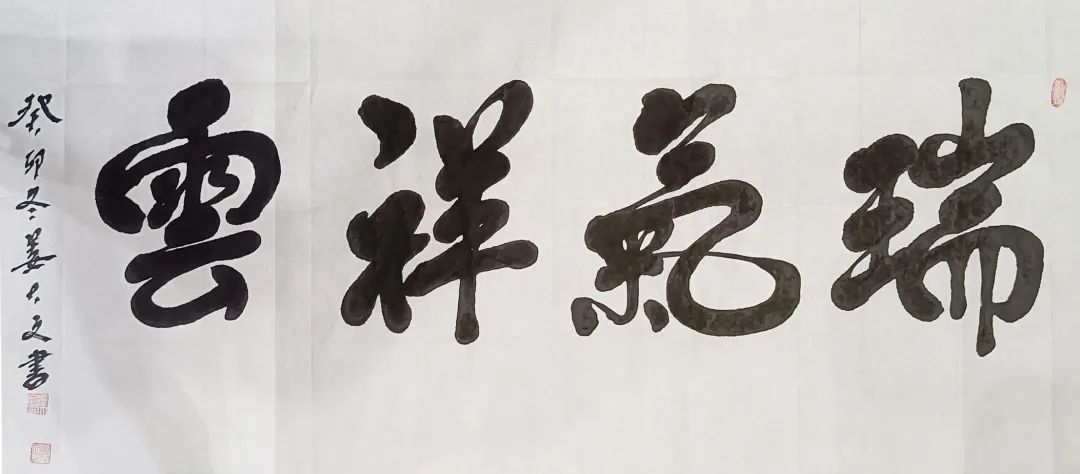 瑞氣祥雲
癸卯冬姜大文書